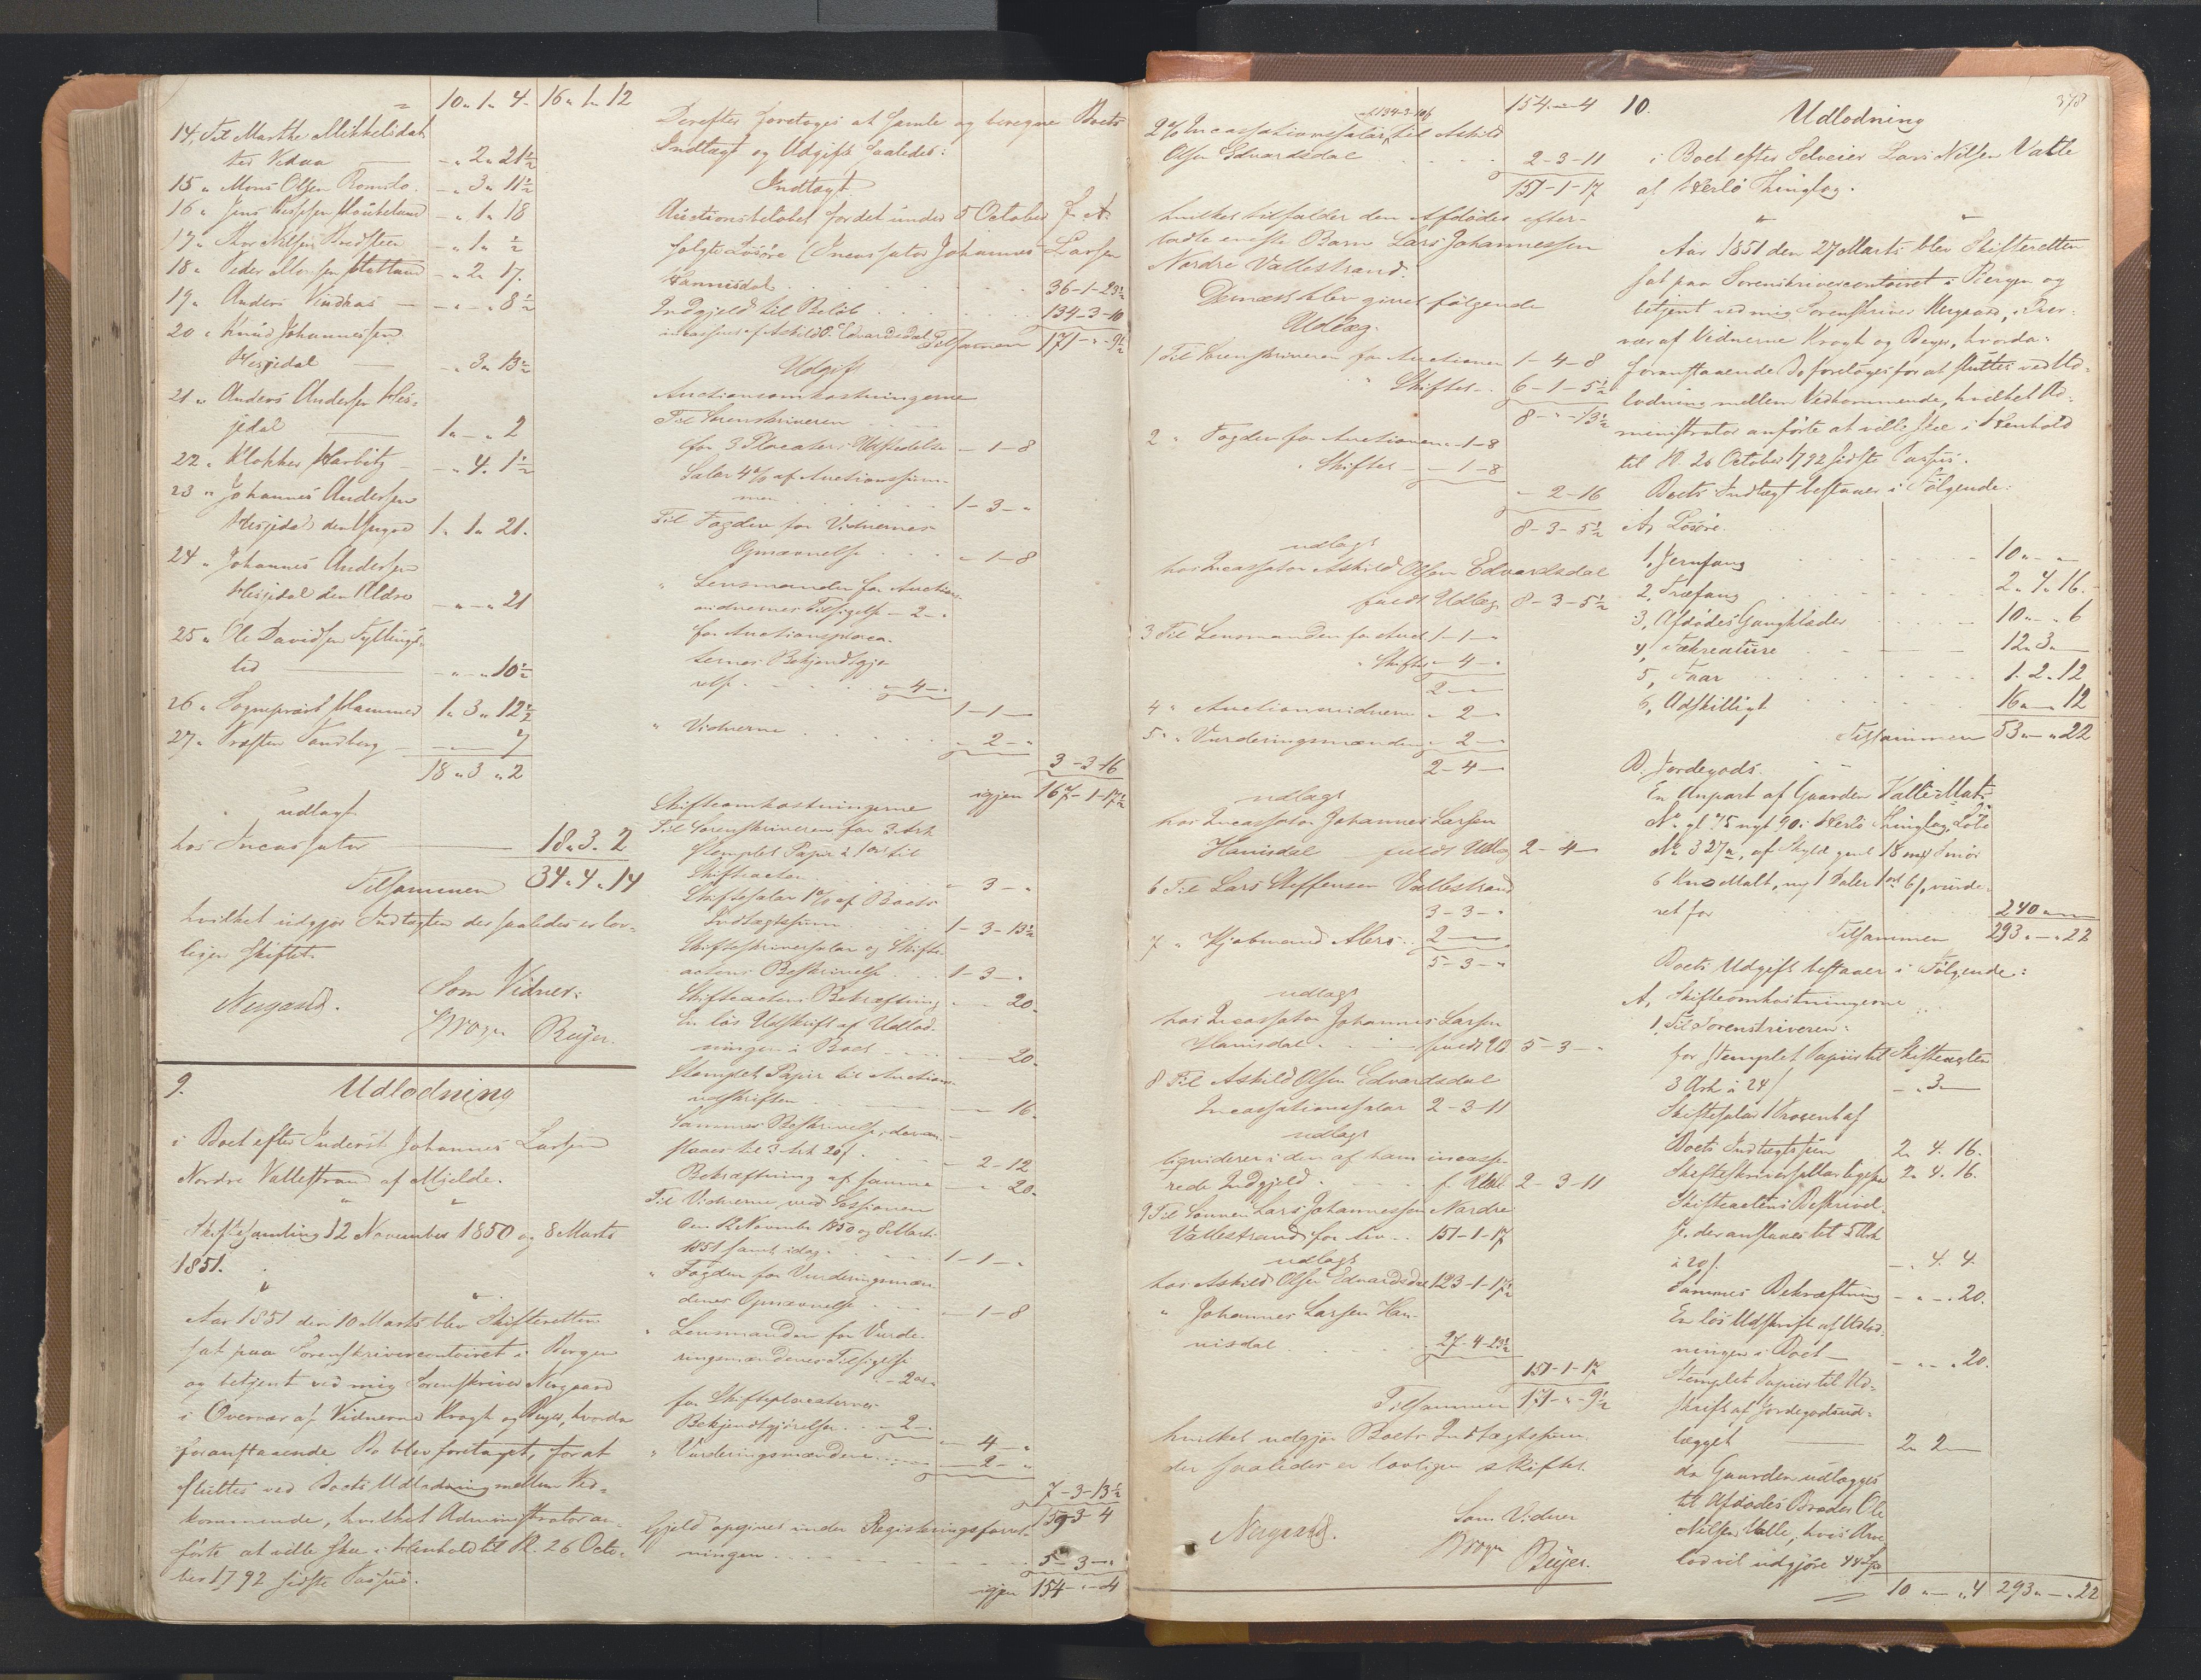 10 " 1 " 4. 16 " 1 " 12
14, Til Marthe Mikkelsdat
ter Vidua — - " 2 " 21½
15 " Mons Olsen Romslo. - " 3 " 11½
16 " Jens Jespersen Houkeland - " 1 " 18
17 " Thor Nilsen Tvedsteen - " 1 " ½
18 " Peder Monsen Hatland - " 2 " 17.
19 " Anders Vindnæs — - " - " 8½
20 " Knud Johannessen
Hesjedal — - " 3 " 13½
21 " Anders Andersen Hes-
jedal — 1 " - " 2
22 " Klokker Harbitz — - " 4. 1½
23 " Johannes Andersen
Hesjedal den Yngre 1 " 1 " 21.
24 " Johannes Andersen
Hesjedal den Ældre - " - " 21
25 " Ole Davidsen Tyllings-
lid — - " - " 10½
26 " Sogneprest Hammer 1 " 3 " 12½
27 " Præsten Sandberg — - " — 7
18 " 3 " 2
udlagt
hos Incassator — 18 " 3. 2
Tilsammen 34 " 4 " 14
hvilket udgjør Indtægten der saaledes er lov-
ligen skiftet.
Nergaard. Som Vidner:
Krogh Beyer.
9. Udlodning
i Boet efter Inderst Johannes Larsen
Nordre Vallestrand af Mjelde.
" "
Skiftesamling 12 November 1850 og 8 Marts
1851.
" "
Aar 1851 den 10 Marts blev Skifteretten
sat paa Sorenskrivercontoiret i Bergen
og betjent ved mig Sorenskriver Nergaard
i Overvær af Vidnerne Krogh og Beyer, hvorda
foranstaaende Bo blev foretaget, for at
sluttes ved Boets Udlodning mellem Ved-
kommende, hvilket Administrator an-
førte at ville skee i Henhold til Pl. 26 Octo-
ber 1792 sidste Passus.
Derefter foretoges at samle og beregne Boets
Indtægt og Udgift saaledes:
Indtægt
Auctionsbeløbet for det under 5 October f. A.
solgte Løsøre (Incassator Johannes Larsen
Hannisdal . . . . . . . . 36-1-23½
Indgjeld til Beløb . . . . . . 134-3-10
incasseres af Askild O. Edvardsdal Tilsammen 171-"-9½
Udgift
Auctionsomkostningerne
Til Sorenskriveren
for 3 Placaters Udstedelse - 1-8
Salær 4 % af Auctionssum-
men . . . . . 1-3-"
Til Fogden for Vidnernes
Opnævnelse . . . - 1-8
" Lensmanden for Auctions-
vidnernes Tilsigelse - 2 - "
for Auctionsplaca-
ternes Bekjendtgjø-
relse . . . . - 4 - "
1-1-
" Vidnerne . . . . . - 2 - "
3-3-16
igjen 167-1-17½
Skifteomkostningerne
Til Sorenskriveren for 3 Ark
stemplet Papir à 1 ort til
Skifteacten . . . . - 3 - "
Skiftesalær 1 % af Boets
Indtægtssum . . . 1-3-13½
Skifteskriversalær og Skifte-
actens Beskrivelse . . . 1-3-"
Skifteactens Bekræftning - - 20.
En løs Udskrift af Udlod-
ningen i Boet - - - 20.
Stemplet Papir til Auctions-
udskriften . . . . - - 16.
Sammes Beskrivelse, deran-
slaaes til 3 Ark 20 s. . . - 2-12
Bekræftning af samme . - - 20.
Til Vidnerne ved Sessionen
den 12 November 1850 og 8 Marts
1851 samt idag . . . 1-1-"
" Fogden for Vurderingsmæn-
denes Opnævnelse . . . - 1-8
" Lensmanden for Vurde-
ringsmændenes Tilsigelse
- 2 -
for Skifteplacaternes
Bekjendtgjørelse . - 2 - "
- 4 - "
" Vurderingsmændene . . . - 2 - "
7-3-13½
159-3-4
Gjeld opgivet under Registeringsforret-
ningen . . . . . . . . 5-3-"
igjen 154-"-4
154-"-4
af 134-3-10 s
2 % Incassationssalær til Askild
Olsen Edvardsdal . . . . . 2-3-11
151-1-17
hvilket tilfalder den Afdødes efter-
ladte eneste Barn Lars Johannessen
Nordre Vallestrand.
Dernæst blev givet følgende
Udlæg.
1 Til Sorenskriveren for Auctionen 1-4-8
" Skiftet . 6-1-5½
8-"-13½
2 " Fogden for Auctionen - 1-8
" Skiftet - - 1-8
- 2-16
8-3-5½
udlagt
hos Incassator Askild Olsen Edvardsdal
fuldt Udlæg 8-3-5½
3 Til Lensmanden for Auct. 1-1-"
" Skiftet - 4 - "
2 - " -
4 " Auctionsvidnerne " 2 - "
5 " Vurderingsmændene " 2 - "
2-4-
udlagt
hos Incassator Johannes Larsen
Hanisdal fuldt Udlæg 2-4-
6 Til Lars Steffensen Vallestrand
3-3-"
7 " Kjøbmand Ahlers . . 2 - "
5-3-"
udlagt
hos Incassator Johannes Larsen
Hanisdal . . . . fuldt Ud 5-3-"
8 Til Askild Olsen Edvardsdal
Incassationssalær 2-3-11
udlagt
liqviderer i den af ham incasse-
rede Indgjeld . . . . f. Udl. 2-3-11
9 Til Sønnen Lars Johannessen Nordre
Vallestrand for Arv . . 151-1-17
udlagt
hos Askild Olsen Edvardsdal 123-1-17½
" Johannes Larsen Han-
nisdal . . . . . . 27-4-23½
151-1-17
Tilsammen 171-"-9½
hvilket udgjør Boets Indtægtssum.
der saaledes er lovligen skiftet.
Nergaard. Som Vidner
Krogh Beyer.
378
10. Udlodning
i Boet efter Selveier Lars Nilsen Valle
af Herlø Thinglag.
" "
Aar 1851 den 27 Marts blev Skifteretten
sat paa Sorenskrivercontoiret i Bergen og
betjent ved mig Sorenskriver Nergaard, i Over-
vær af Vidnerne Krogh og Beyer, hvorda
foranstaaende Bo foretoges for at sluttes ved Ud-
lodning mellem Vedkommende, hvilket Ad-
ministrator anførte at ville skee i Henhold
til Pl. 26 October 1792 sidste Passus.
Boets Indtægt bestaaer i Følgende:
A, Løsøre.
1, Jernfang . . . . 10 " - " -
2, Træfang . . . . 2 " 4 " 16.
3, Afdødes Gangklæder . . . 10 " - " 6
4, Fækreature . . . . 12 " 3 " -
5, Faar . . . . . 1. 2. 12
6, Adskilligt . . . . . 16 " - " 12
Tilsammen 53 " - " 22
B. Jordegods.
En Anpart af Gaarden Valle Matr.
No gl. 75 nyt 90 i Herlø Thinglag, Løbe
No 327 a, af Skyld gml. 18 mrk Smør
6 Knr Malt, ny 1 Daler 1 ort 6 s, vurde-
ret for . . . . . 240 " - " -
Tilsammen 293 " - " 22
Boets Udgift bestaaer i Følgende:
A, Skifteomkostningerne
1. Til Sorenskriveren:
for stemplet Papiir til Skifteacten
3 Ark à 24 s - " 3 -
Skiftesalær 1 Procent af
Boets Indtægtssum 2 " 4. 16.
Skifteskriversallær ligesaa 2 " 4. 16.
Skifteactens Beskrivel-
se, der anslaaes til 5 Ark
à 20 s. - " 4. 4.
Sammes Bekræftning - " - " 20.
En løs Udskrift af Udlod-
ningen i Boet — - " - " 20.
Stemplet Papiir til Ud-
skrift af Jordegodsud-
lægget — 2 " 2 " -
da Gaarden udlægges
til Afdødes Broder Ole
Nilsen Valle, hvis Arve
lod vil udgjøre 44 Sp
10 " - " 4 293 " - " 22